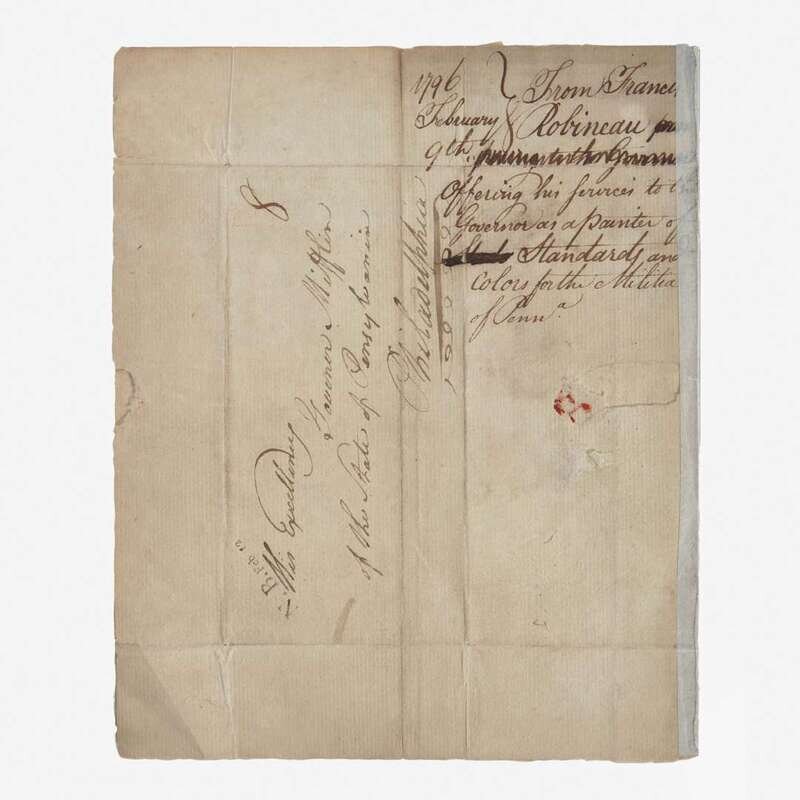 1796
February
9th
From Franci
Robineau
Offering his services to t
Governor as a painter of
Standards and
Colors for the Militia
of Penna
8
B. Feb 12
His Excellency
Governor Mifflin
of the State of Pensylvannia
Philadelphia